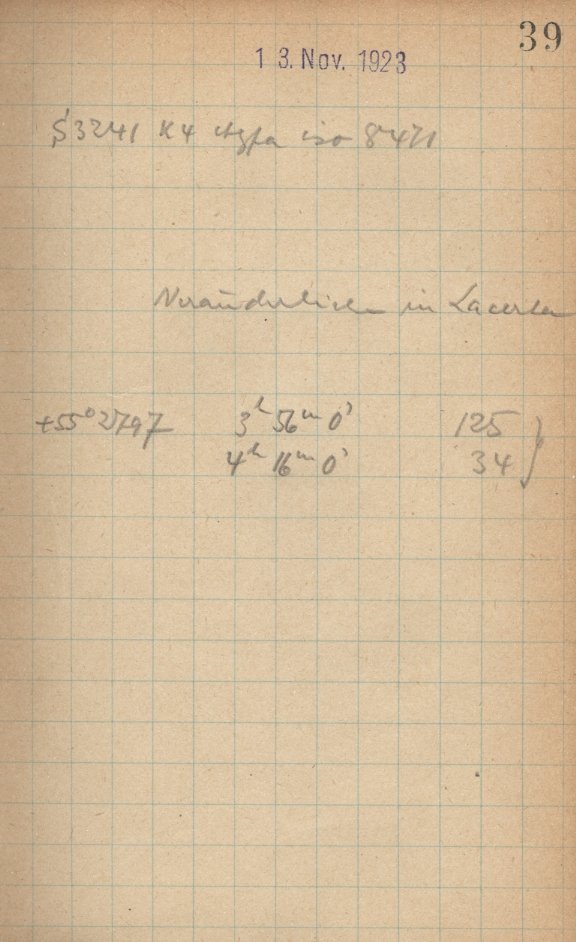 39
13. Nov. 1923
S 3241 K4 Agfa iso 8471
Veränderlicher in Lacerta
+55° 2797 3ʰ 56ᵐ 0ˢ 125
4ʰ 16ᵐ 0ˢ 34